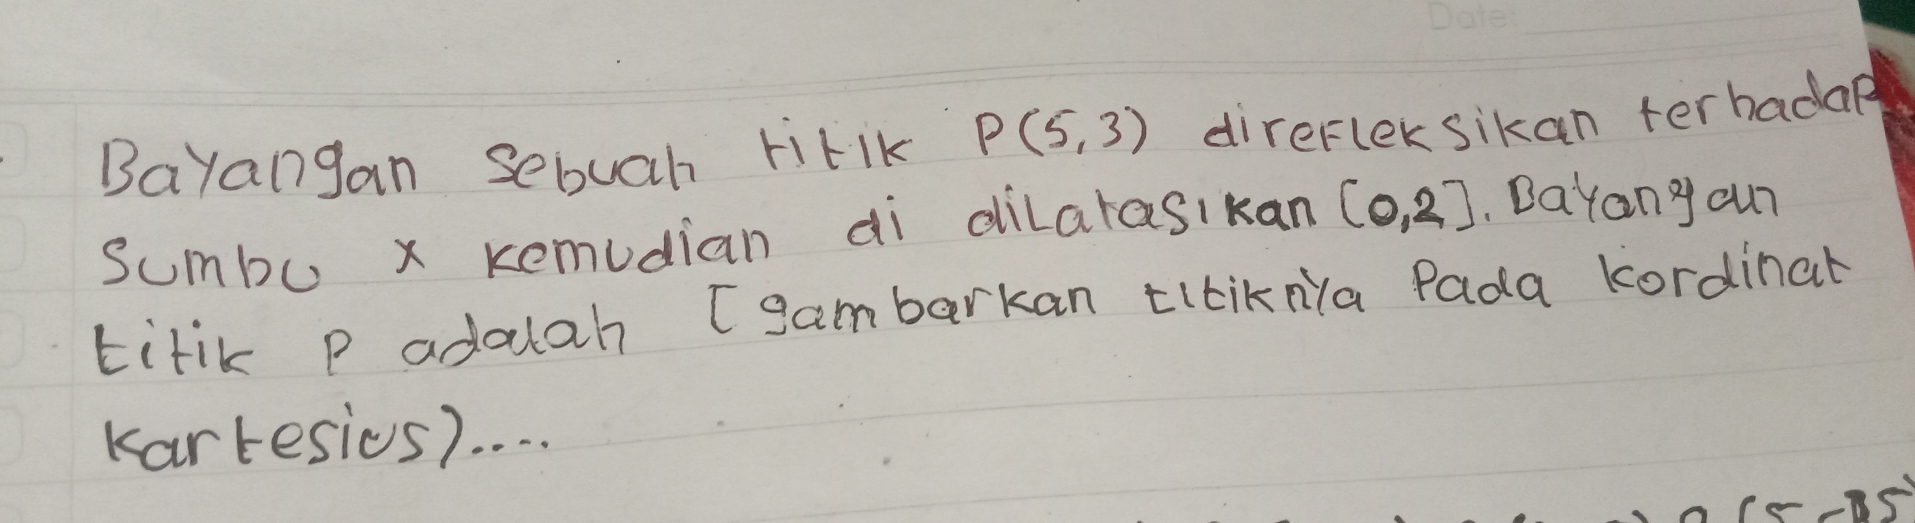 Date:
Bayangan sebuah titik P(5,3) direfleksikan terhadap
sumbu x kemudian di dilatasikan [0,2]. Bayangan
titik P adalah [gambarkan titiknya Pada kordinat
kartesius)....